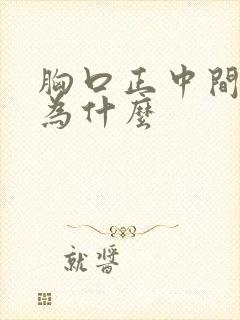 胸口正中間
為什麼
就醬